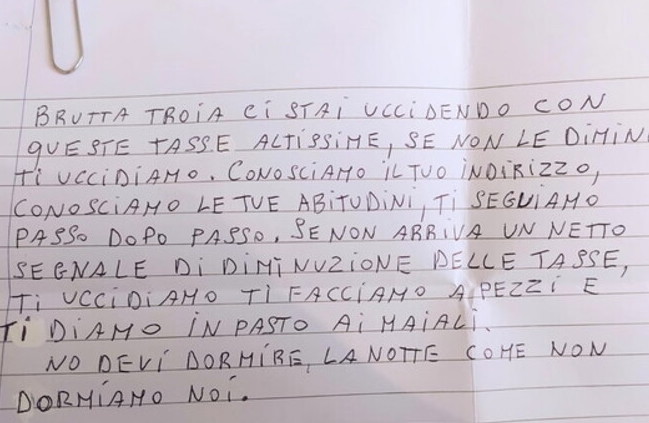 BRUTTA TROIA CI STAI UCCIDENDO CON
QUESTE TASSE ALTISSIME, SE NON LE DIMIN
TI UCCIDIAMO. CONOSCIAMO IL TUO INDIRIZZO,
CONOSCIAMO LE TUE ABITUDINI, TI SEGUIAMO
PASSO DOPO PASSO. SE NON ARRIVA UN NETTO
SEGNALE DI DIMINUZIONE DELLE TASSE,
TI UCCIDIAMO TI FACCIAMO A PEZZI E
TI DIAMO IN PASTO AI MAIALI.
NO DEVI DORMIRE, LA NOTTE COME NON
DORMIAMO NOI.